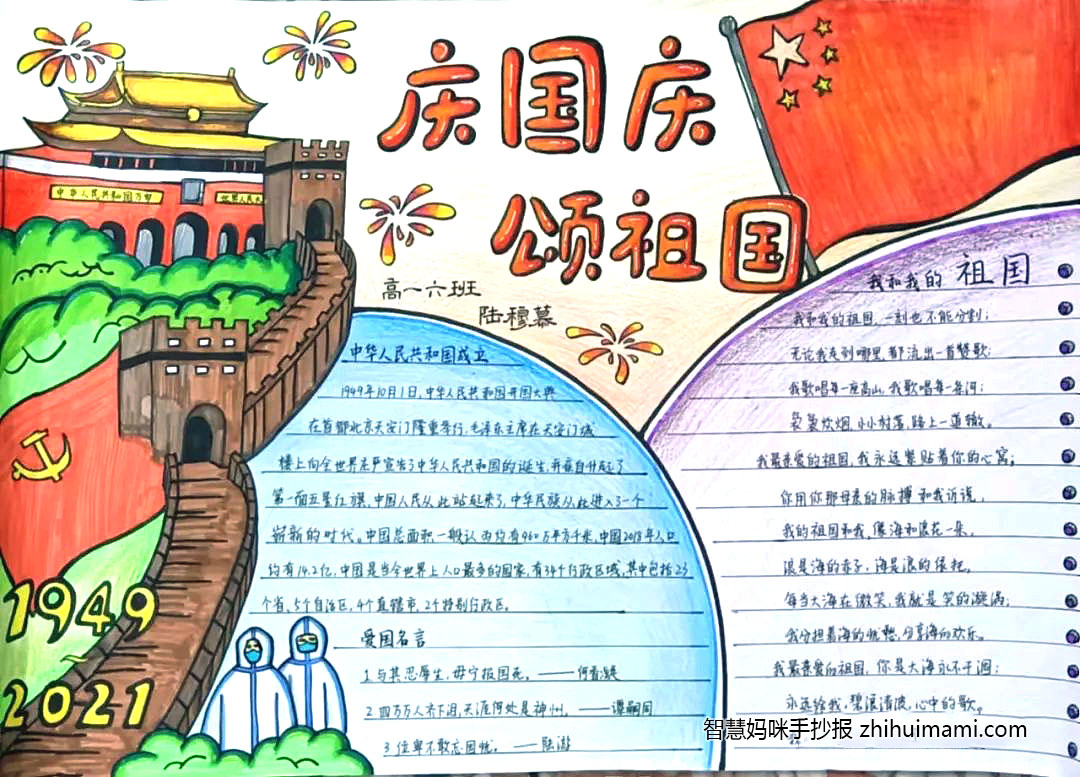 庆国庆
颂祖国
高一六班
陆穆慕
中华人民共和国万岁
世界人民大
中华人民共和国成立
1949年10月1日，中华人民共和国开国大典
在首都北京天安门隆重举行，毛泽东主席在天安门城
楼上向全世界庄严宣告了中华人民共和国的诞生，并亲自升起了
第一面五星红旗，中国人民从此站起来了，中华民族从此进入了一个
崭新的时代。中国总面积一般认为约有960万平方千米，中国2018年人口
约有14.2亿，中国是当今世界上人口最多的国家，有34个行政区域，其中包括23
个省，5个自治区，4个直辖市，2个特别行政区。
爱国名言
1 与其忍辱生，毋宁报国死。——何香凝
2 四万万人齐下泪，天涯何处是神州。——谭嗣同
3 位卑不敢忘国忧。——陆游
我和我的祖国
我和我的祖国，一刻也不能分割；
无论我走到哪里，都流出一首赞歌；
我歌唱每一座高山，我歌唱每一条河；
袅袅炊烟，小小村落，路上一道辙。
我最亲爱的祖国，我永远紧贴着你的心窝；
你用你那母亲的脉搏和我诉说。
我的祖国和我，像海和浪花一朵，
浪是海的赤子，海是浪的依托。
每当大海在微笑，我就是笑的漩涡；
我分担着海的忧愁，分享海的欢乐。
我最亲爱的祖国，你是大海永不干涸；
永远给我，碧浪清波，心中的歌。
1949
2021
智慧妈咪手抄报 zhihuimami.com